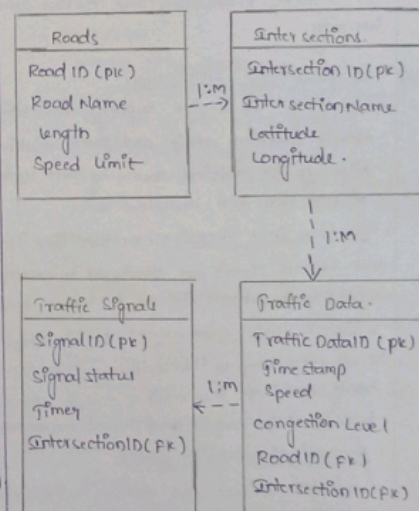 Roads
Road ID (pk)
Road Name
Length
Speed Limit
1:M
Intersections.
Intersection ID (pk)
Intersection Name
Latitude
Longitude.
1:M
Traffic Signals
Signal ID (pk)
Signal status
Timer
Intersection ID (FK)
1:m
Traffic Data.
Traffic Data ID (pk)
Time stamp
Speed
congestion Level
Road ID (FK)
Intersection ID (FK)